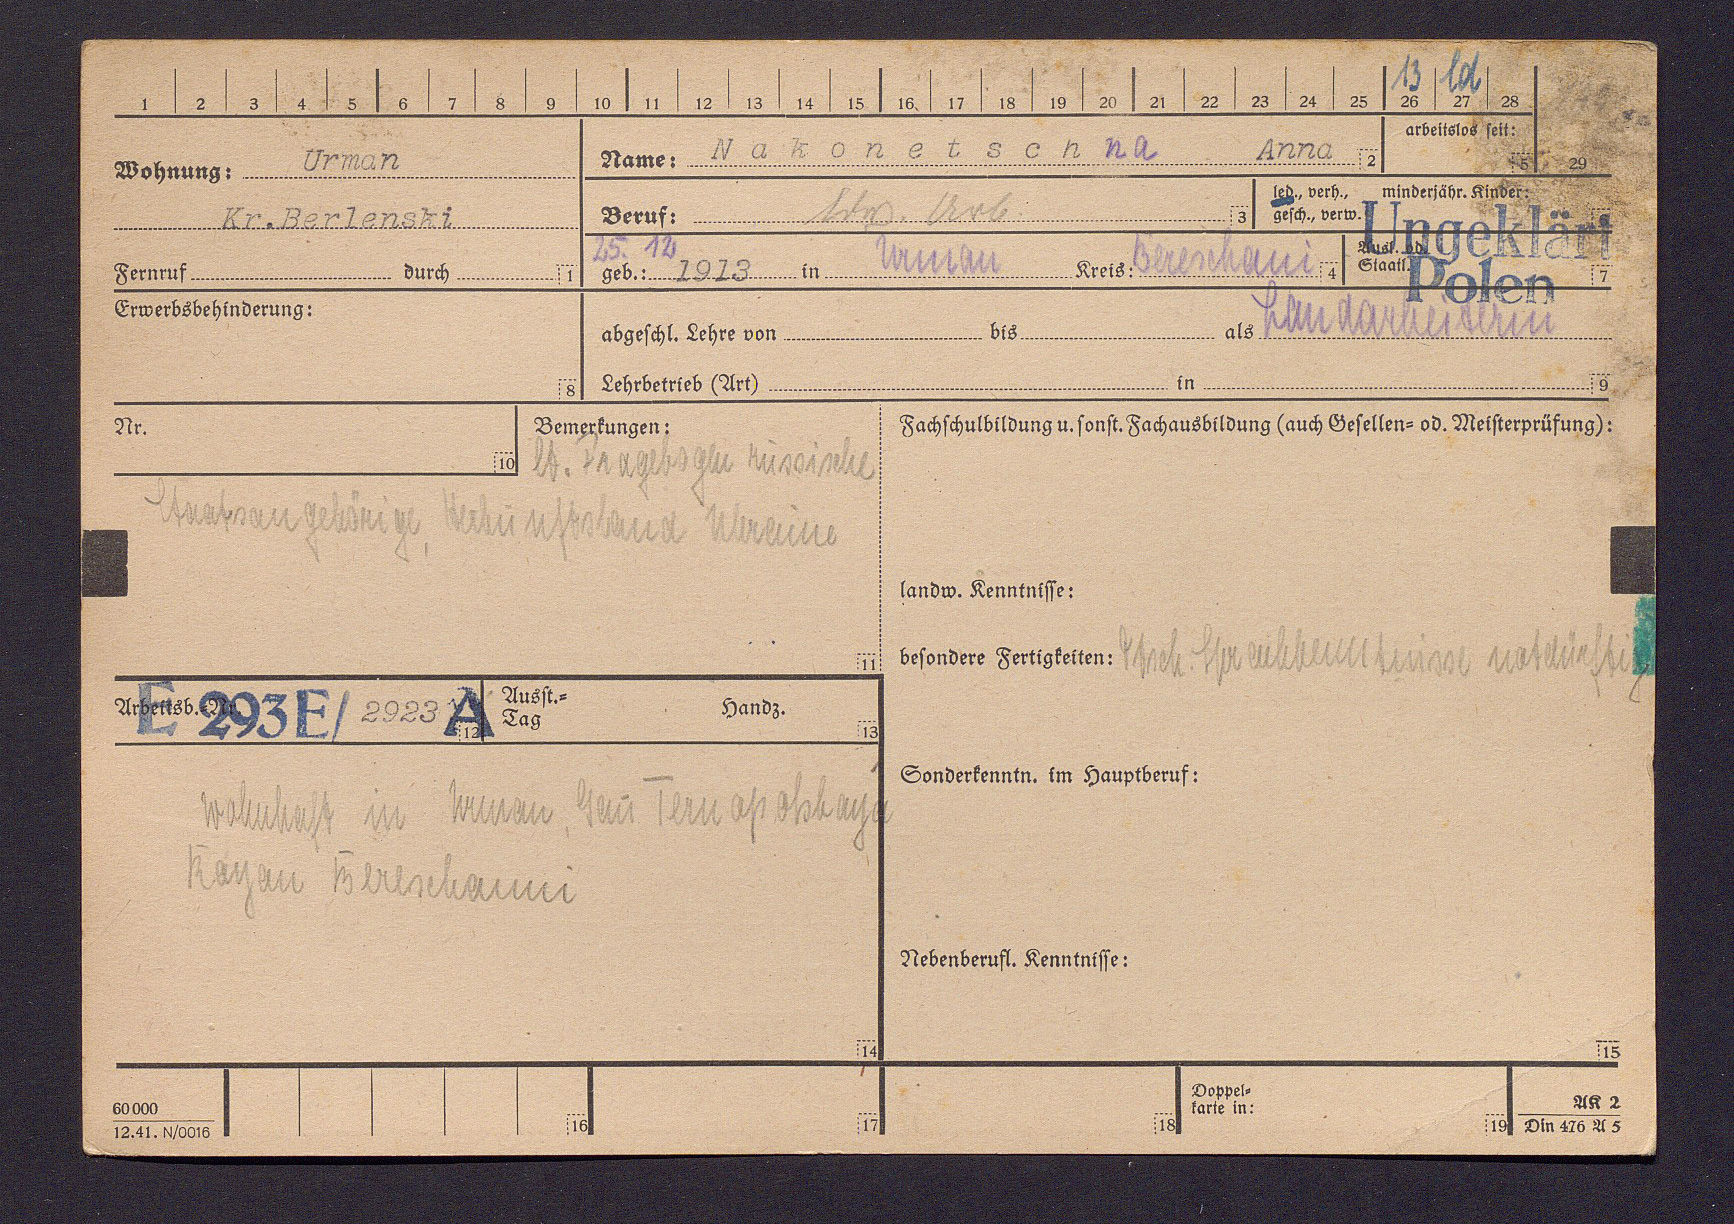 13 ld
1 2 3 4 5 6 7 8 9 10 11 12 13 14 15 16 17 18 19 20 21 22 23 24 25 26 27 28
Wohnung: Urman
Kr.Berlenski
Fernruf durch 1
Name: Nakonetschna Anna 2
arbeitslos seit: 5 29
Beruf: Ldw Arb 3
led., verh., gesch., verw.
minderjähr. Kinder:
25. 12
geb.: 1913 in Urman Kreis: Bereschani 4
Ausl. od. Staatl. 7
Ungeklärt
Polen
Erwerbsbehinderung: 8
abgeschl. Lehre von bis als Landarbeiterin
Lehrbetrieb (Art) in 9
Nr. 10
Bemerkungen:
lt. Fragebogen russische
Staatsangehörige, Herkunftsland Ukraine
11
Fachschulbildung u. sonst. Fachausbildung (auch Gesellen= od. Meisterprüfung):
landw. Kenntnisse:
besondere Fertigkeiten: Dtsch. Sprachkenntnisse notdürftig
Arbeitsb.-Nr. E 293E/ 2923 A 12
Ausst.= Tag Handz. 13
wohnhaft in Urman, Gau Ternopolskaja
Rayan Bereschanni
14
Sonderkenntn. im Hauptberuf:
Nebenberufl. Kenntnisse:
15
60000
12.41. N/0016
16 17 18
Doppel=
karte in: 19
AK 2
Din 476 A 5